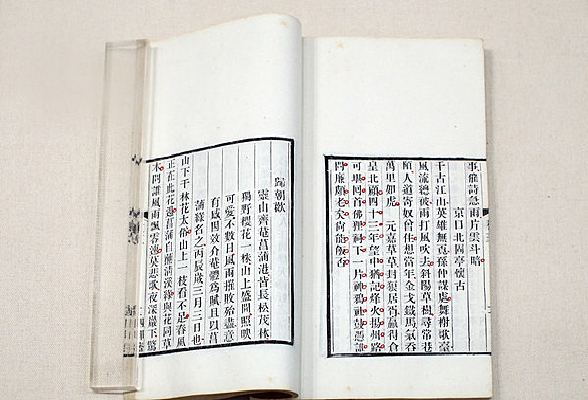 事飛詩急雨片雲斗暗
京口北固亭懷古
千古江山英雄無覓孫仲謀處舞榭歌臺
風流總被雨打風吹去斜陽草樹尋常巷
陌人道寄奴曾住想當年金戈鐵馬氣吞
萬里如虎 元嘉草草封狼居胥贏得倉
皇北顧四十三年望中猶記烽火揚州路
可堪回首佛貍祠下一片神鴉社鼓憑誰
問廉頗老矣尚能飯否
歸朝歡
靈山齊庵菖蒲港皆長松茂林
獨野櫻花一株山上盛開照映
可愛不數日風雨摧敗殆盡意
有感因效介庵體為賦且以菖
蒲綠名之丙辰歲三月三日也
山下千林花太俗山上一枝看不足春風
正在此花邊菖蒲自蘸清溪綠與花同草
木問誰風雨飄零速莫悲歌夜深巖下驚